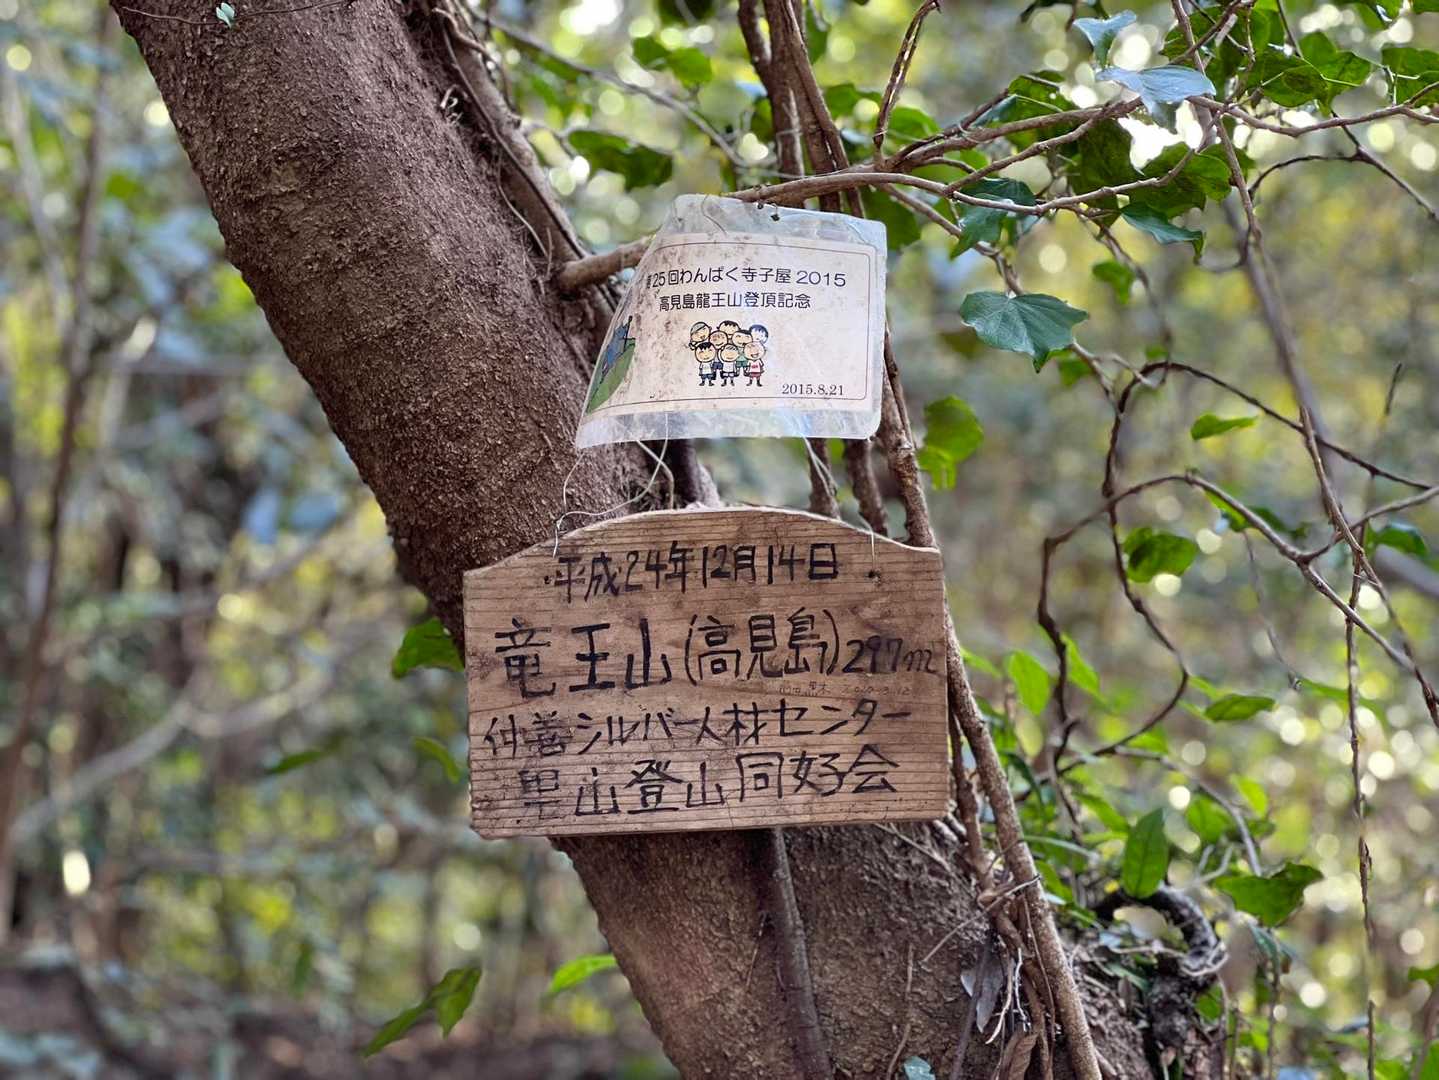 25回わんぱく寺子屋 2015
高見島龍王山登頂記念
2015.8.21
平成24年12月14日
竜王山(高見島)297m
仲善シルバー人材センター
里山登山同好会